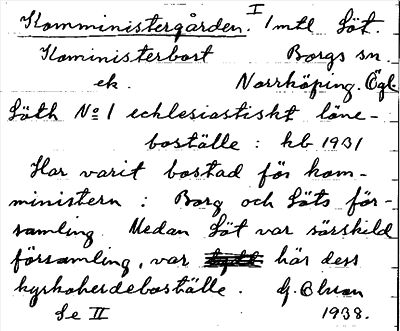 Komministergården. I 1 mtl Löt.
Kominister bost Borgs sn.
ek. Norrköping. Ögl.
Löth No 1 ecklesiastiskt löne-
boställe : kb 1931
Har varit bostad för kom-
ministern i Borg och Löts för-
samling. Medan Löt var särskild
församling, var här dess
kyrkoherdeboställe. G. Olson
Se II 1938.